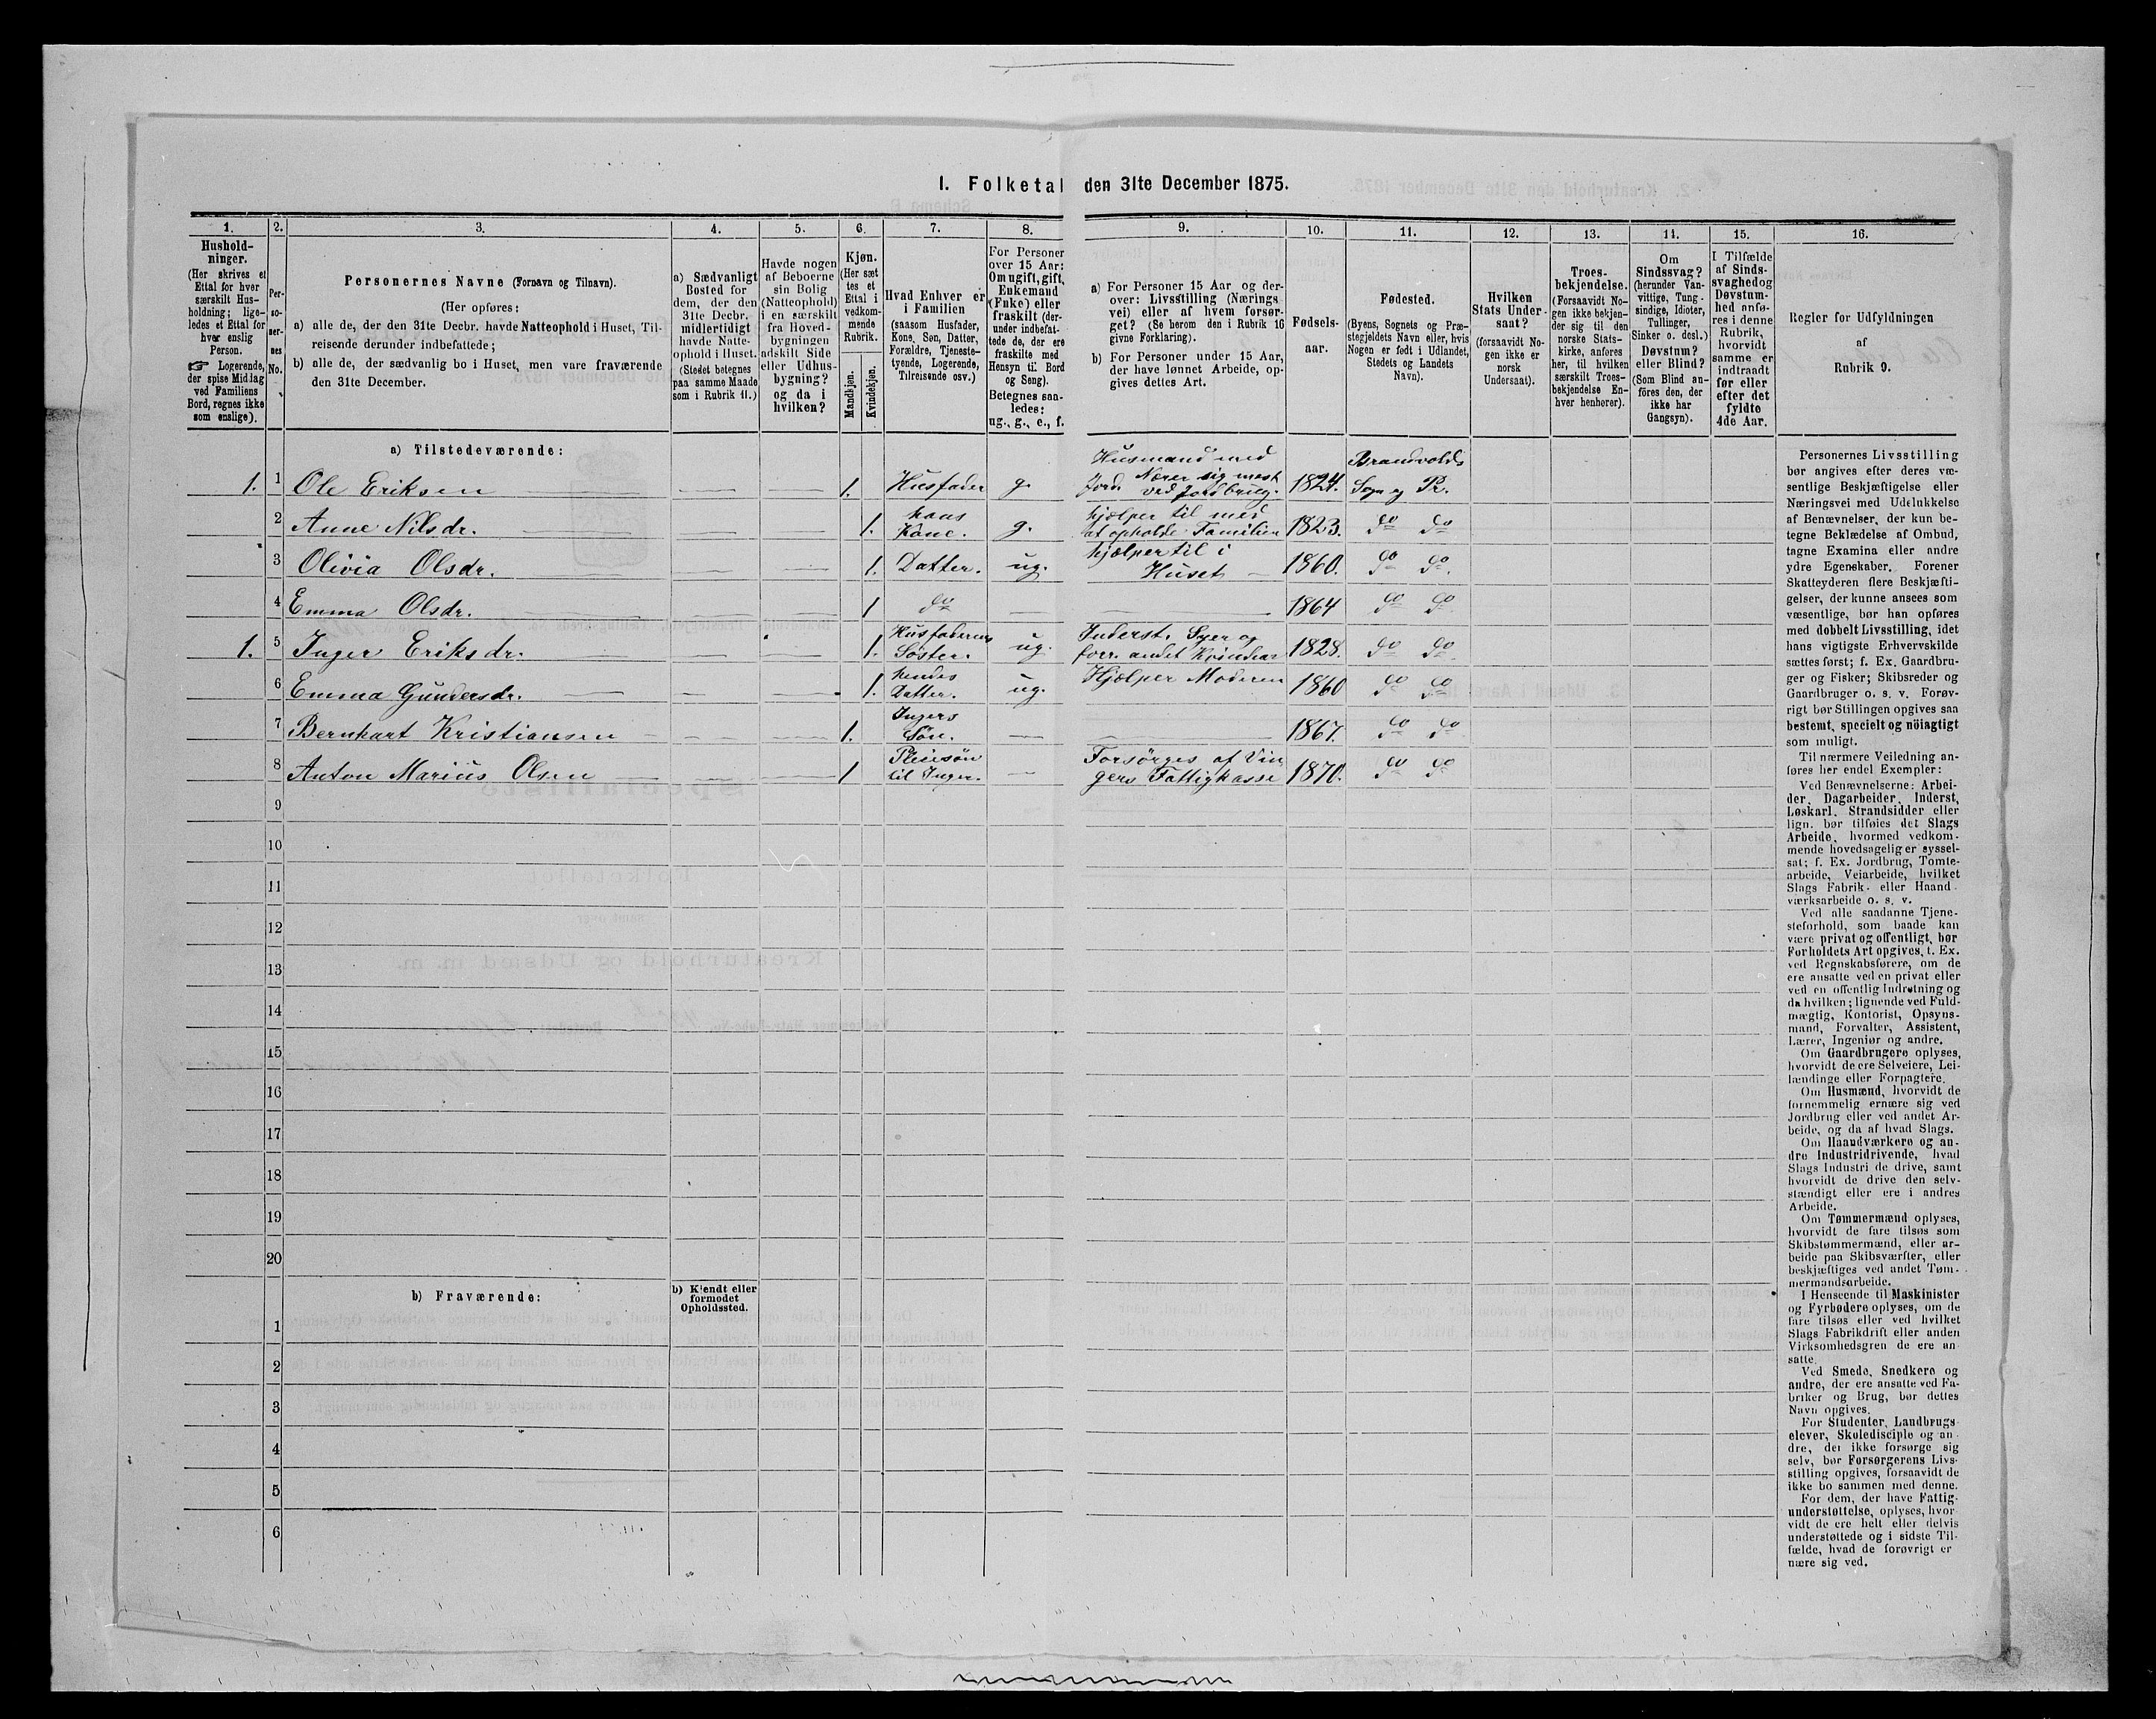 1. Folketal den 31te December 1875.
1.
Hushold-
ninger.
(Her skrives et
Ettal for hver
særskilt Hus-
holdning; lige-
ledes et Ettal for
hver enslig
Person.
☞ Logerende,
der spise Middag
ved Familiens
Bord, regnes ikke
som enslige).
2.
Per-
so-
ner-
nes
No.
3.
Personernes Navne (Fornavn og Tilnavn).
(Her opføres:
a) alle de, der den 31te Decbr. havde Natteophold i Huset, Til-
reisende derunder indbefattede;
b) alle de, der sædvanlig bo i Huset, men vare fraværende
den 31te December.
4.
a) Sædvanligt
Bosted for
dem, der den
31te Decbr.
midlertidigt
havde Natte-
ophold i Huset.
(Stedet betegnes
paa samme Maade
som i Rubrik 11.)
5.
Havde nogen
af Beboerne
sin Bolig
(Natteophold)
i en særskilt
fra Hoved-
bygningen
adskilt Side
eller Udhus-
bygning?
og da i
hvilken?
6.
Kjøn.
(Her sæt
tes et
Ettal i
vedkom-
mende
Rubrik.
Mandkjøn.
Kvindekjøn.
7.
Hvad Enhver er
i Familien
(saasom Husfader,
Kone, Søn, Datter,
Forældre, Tjeneste-
tyende, Logerende,
Tilreisende osv.)
8.
For Personer
over 15 Aar:
Om ugift, gift,
Enkemand
(Enke) eller
fraskilt (der-
under indbefat-
tede de, der ere
fraskilte med
Hensyn til Bord
og Seng).
Betegnes saa-
ledes:
ug., g., e., f.
9.
a) For Personer 15 Aar og der-
over: Livsstilling (Nærings
vei) eller af hvem forsør-
get? (Se herom den i Rubrik 16
givne Forklaring).
b) For Personer under 15 Aar,
der have lønnet Arbeide, op-
gives dettes Art.
10.
Fødsels-
aar.
11.
Fødested.
(Byens, Sognets og Præ-
stegjeldets Navn eller, hvis
Nogen er født i Udlandet,
Stedets og Landets
Navn).
12.
Hvilken
Stats Under-
saat?
(forsaavidt No-
gen ikke er
norsk
Undersaat).
13.
Troes-
bekjendelse.
(Forsaavidt No-
gen ikke bekjen-
der sig til den
norske Stats-
kirke, anføres
her, til hvilken
særskilt Troes-
bekjendelse En-
hver henhører).
14.
Om
Sindssvag?
(herunder Van-
vittige, Tung-
sindige, Idioter,
Tullinger,
Sinker o. desl.)
Døvstum?
eller Blind?
(Som Blind an-
føres den, der
ikke har
Gangsyn).
15.
I Tilfælde
af Sinds-
svaghed og
Døvstum-
hed anfø-
res i denne
Rubrik,
hvorvidt
samme er
indtraadt
før eller
efter det
fyldte
4de Aar.
16.
Regler for Udfyldningen
af
Rubrik 9.
a) Tilstedeværende:
1. 1 Ole Eriksen 1. Husfader g. Husmand med Jord. Nærer sig mest ved Jordbrug. 1824. Brandvolds Sogn og Pr.
2 Anne Nilsdr. 1. hans Kone. g. hjelper til med at opholde Familien 1823. do do
3 Olivia Olsdr. 1. Datter. ug. hjelper til i Huset 1860. do do.
4 Emma Olsdr. 1 do 1864 do do.
1. 5 Inger Eriksdr. 1. Husfaderens Søster. ug. Inderst. Syer og forr. andet Kvindear 1828. do do
6 Emma Gundersdr. 1. hendes Datter. ug. Hjælper Moderen 1860 do do
7 Bernhart Kristiansen 1. Ingers Søn. 1867. do do.
8 Anton Marius Olsen 1 Pleiesøn til Inger. Forsörges af Vin gers Fattigkasse 1870. do do
9
10
11
12
13
14
15
16
17
18
19
20
b) Fraværende:
b) Kjendt eller
formodet
Opholdssted.
1
2
3
4
5
6
Personernes Livsstilling
bør angives efter deres væ-
sentlige Beskjæftigelse eller
Næringsvei med Udelukkelse
af Benævnelser, der kun be-
tegne Beklædelse af Ombud,
tagne Examina eller andre
ydre Egenskaber. Forener
Skatteyderen flere Beskjæfti-
gelser, der kunne ansees som
væsentlige, bør han opføres
med dobbelt Livsstilling, idet
hans vigtigste Erhvervskilde
sættes først; f. Ex. Gaardbru-
ger og Fisker; Skibsreder og
Gaardbruger o. s. v. Forøv-
rigt bør Stillingen opgives saa
bestemt, specielt og nöiagtigt
som muligt.
Til nærmere Veiledning an-
føres her endel Exempler:
Ved Benævnelserne: Arbei-
der, Dagarbeider, Inderst,
Løskarl, Strandsidder eller
lign. bør tilføies det Slags
Arbeide, hvormed vedkom-
mende hovedsagelig er syssel-
sat; f. Ex. Jordbrug, Tomte-
arbeide, Veiarbeide, hvilket
Slags Fabrik- eller Haand-
værksarbeide o. s. v.
Ved alle saadanne Tjene-
steforhold, som baade kan
være privat og offentligt, bør
Forholdets Art opgives, t. Ex.
ved Regnskabsførere, om de
ere ansatte ved en privat eller
ved en offentlig Indretning og
da hvilken; lignende ved Fuld-
mægtig, Kontorist, Opsyns-
mand, Forvalter, Assistent,
Lærer, Ingeniør og andre.
Om Gaardbrugere oplyses,
hvorvidt de ere Selveiere, Lei-
lændinge eller Forpagtere.
Om Husmænd, hvorvidt de
fornemmelig ernære sig ved
Jordbrug eller ved andet Ar-
beide, og da af hvad Slags.
Om Haandværkere og an-
dre Industridrivende, hvad
Slags Industri de drive, samt
hvorvidt de drive den selv-
stændigt eller ere i andres
Arbeide.
Om Tømmermænd oplyses,
hvorvidt de fare tilsøs som
Skibstømmermænd, eller ar-
beide paa Skibsværfter, eller
beskjæftiges ved andet Tøm-
mermandsarbeide.
I Henseende til Maskinister
og Fyrbødere oplyses, om de
fare tilsøs eller ved hvilket
Slags Fabrikdrift eller anden
Virksomhedsgren de ere an-
satte.
Ved Smede, Snedkere og
andre, der ere ansatte ved Fa-
briker og Brug, bør dettes
Navn opgives.
For Studenter, Landbrugs-
elever, Skoledisciple og an-
dre, der ikke forsørge sig
selv, bør Forsørgerens Livs-
stilling opgives, forsaavidt de
ikke bo sammen med denne.
For dem, der have Fattig-
understøttelse, oplyses, hvor-
vidt de ere helt eller delvis
understøttede og i sidste Til-
fælde, hvad de forøvrigt er-
nære sig ved.